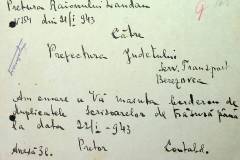 Pretura Raionului Landau
N° 154 din 22/I 943
9
Către
Prefectura Judetului
Serv. Transport
Berezovca
Am onoare a Vă inainta borderou de
duplicatele scrisoarelor de trăsură până
la data 22/I - 943
Anexă 31.
Pretor
Contabil.